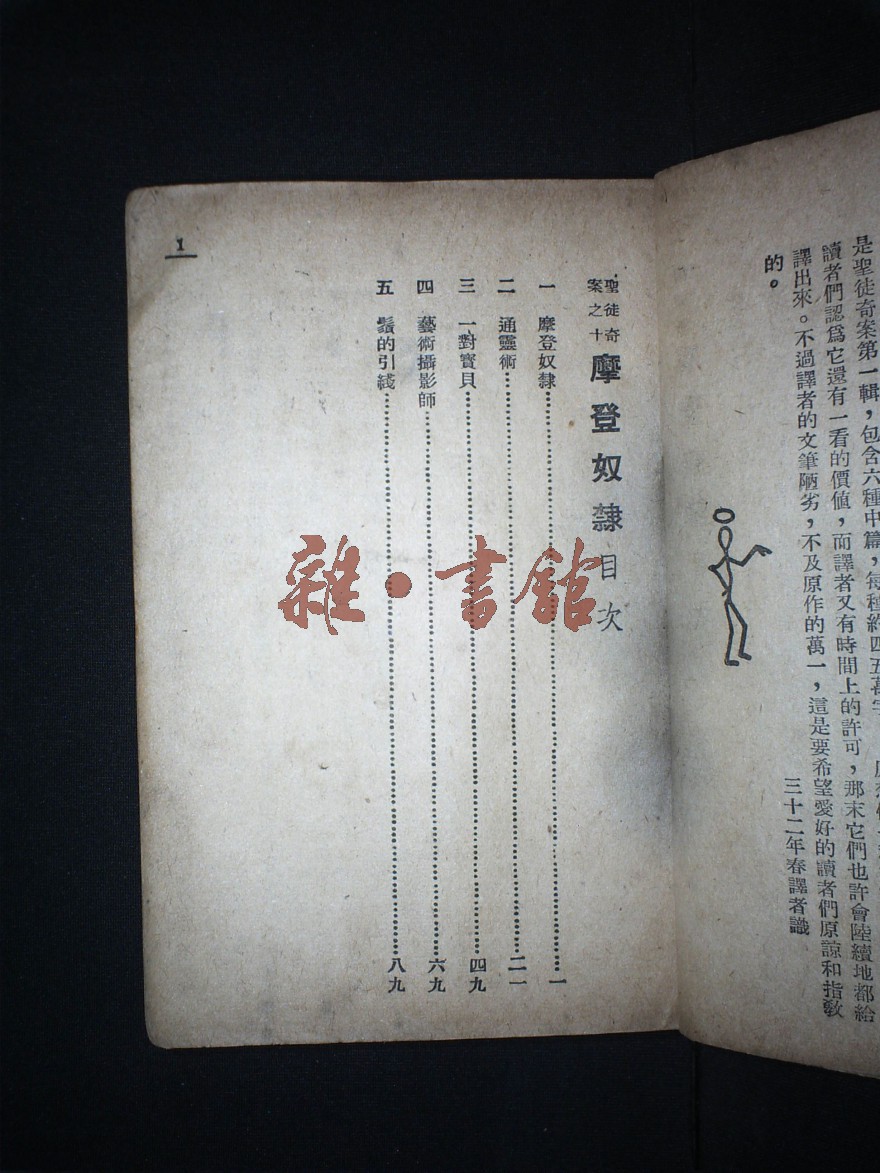 是聖徒奇案第一輯，包含六種中篇，每種約四五萬字
讀者們認爲它還有一看的價值，而譯者又有時間上的許可，那末它們也許會陸續地都給
譯出來。不過譯者的文筆陋劣，不及原作的萬一，這是要希望愛好的讀者們原諒和指教
的。
三十二年春譯者識
聖徒奇
案之十
摩登奴隸目次
一 摩登奴隸……一
二 通靈術……二一
三 一對寶貝……四九
四 藝術攝影師……六九
五 鬚的引綫……八九
1
雜•書館